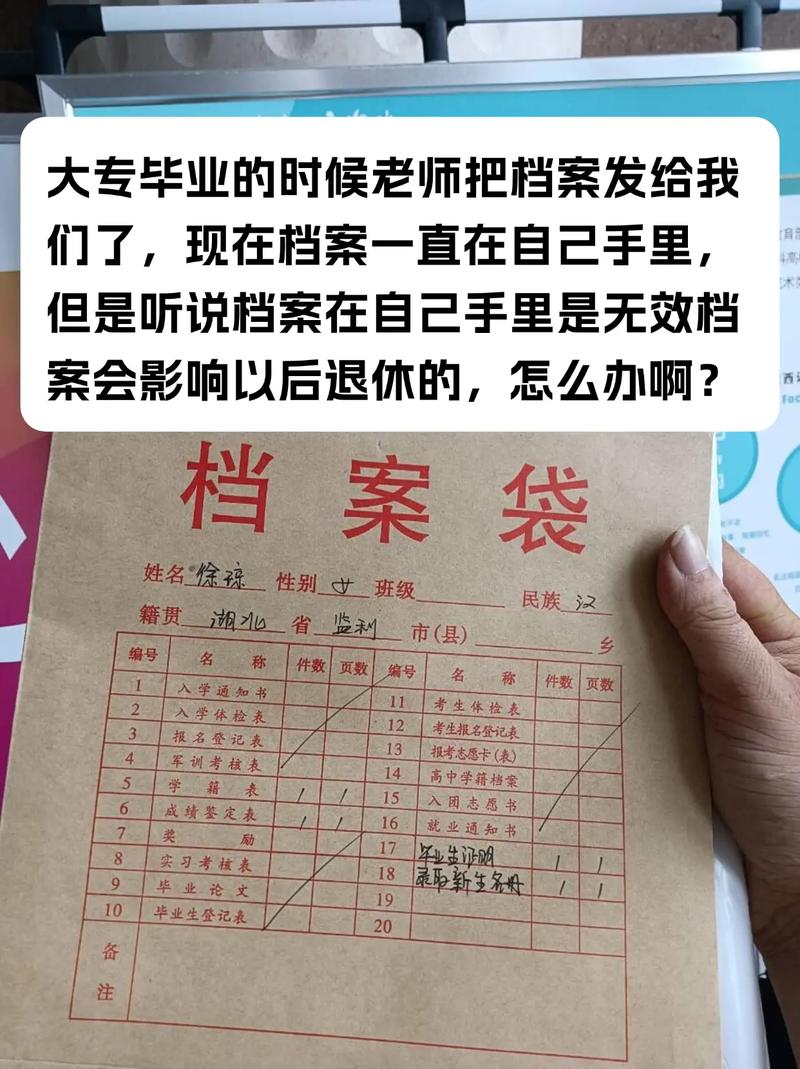 大专毕业的时候老师把档案发给我
们了，现在档案一直在自己手里，
但是听说档案在自己手里是无效档
案会影响以后退休的，怎么办啊？
档 案 袋
姓名 徐琼 性别 女 班级 民族 汉
籍贯 湖北 省 监利 市(县) 乡
编号 名 称 件数 页数 编号 名 称 件数 页数
1 入学通知书 11 考生体检表
2 入学体检表 12 考生报名登记表
3 报名登记表 13 报考志愿卡(表)
4 军训考核表 14 高中学籍档案
5 学 籍 表 1 1 15 入团志愿书
6 成绩鉴定表 1 1 16 就业通知书
7 奖 励 17 毕业生证明 1 1
8 实习考核表 18 录取新生名册 1 1
9 毕业论文 19
10 毕业生登记表 20
备
注